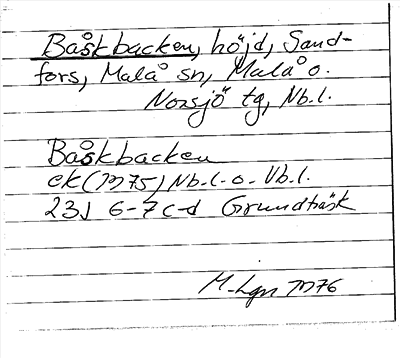 Båskbacken, höjd, Sand-
fors, Malå sn, Malå o.
Norsjö tg, Nb.l.
Båskbacken
ek (m75) Nb.l-o-Vb.l.
23J 6-7c-d Grundträsk
M-Lgn m76